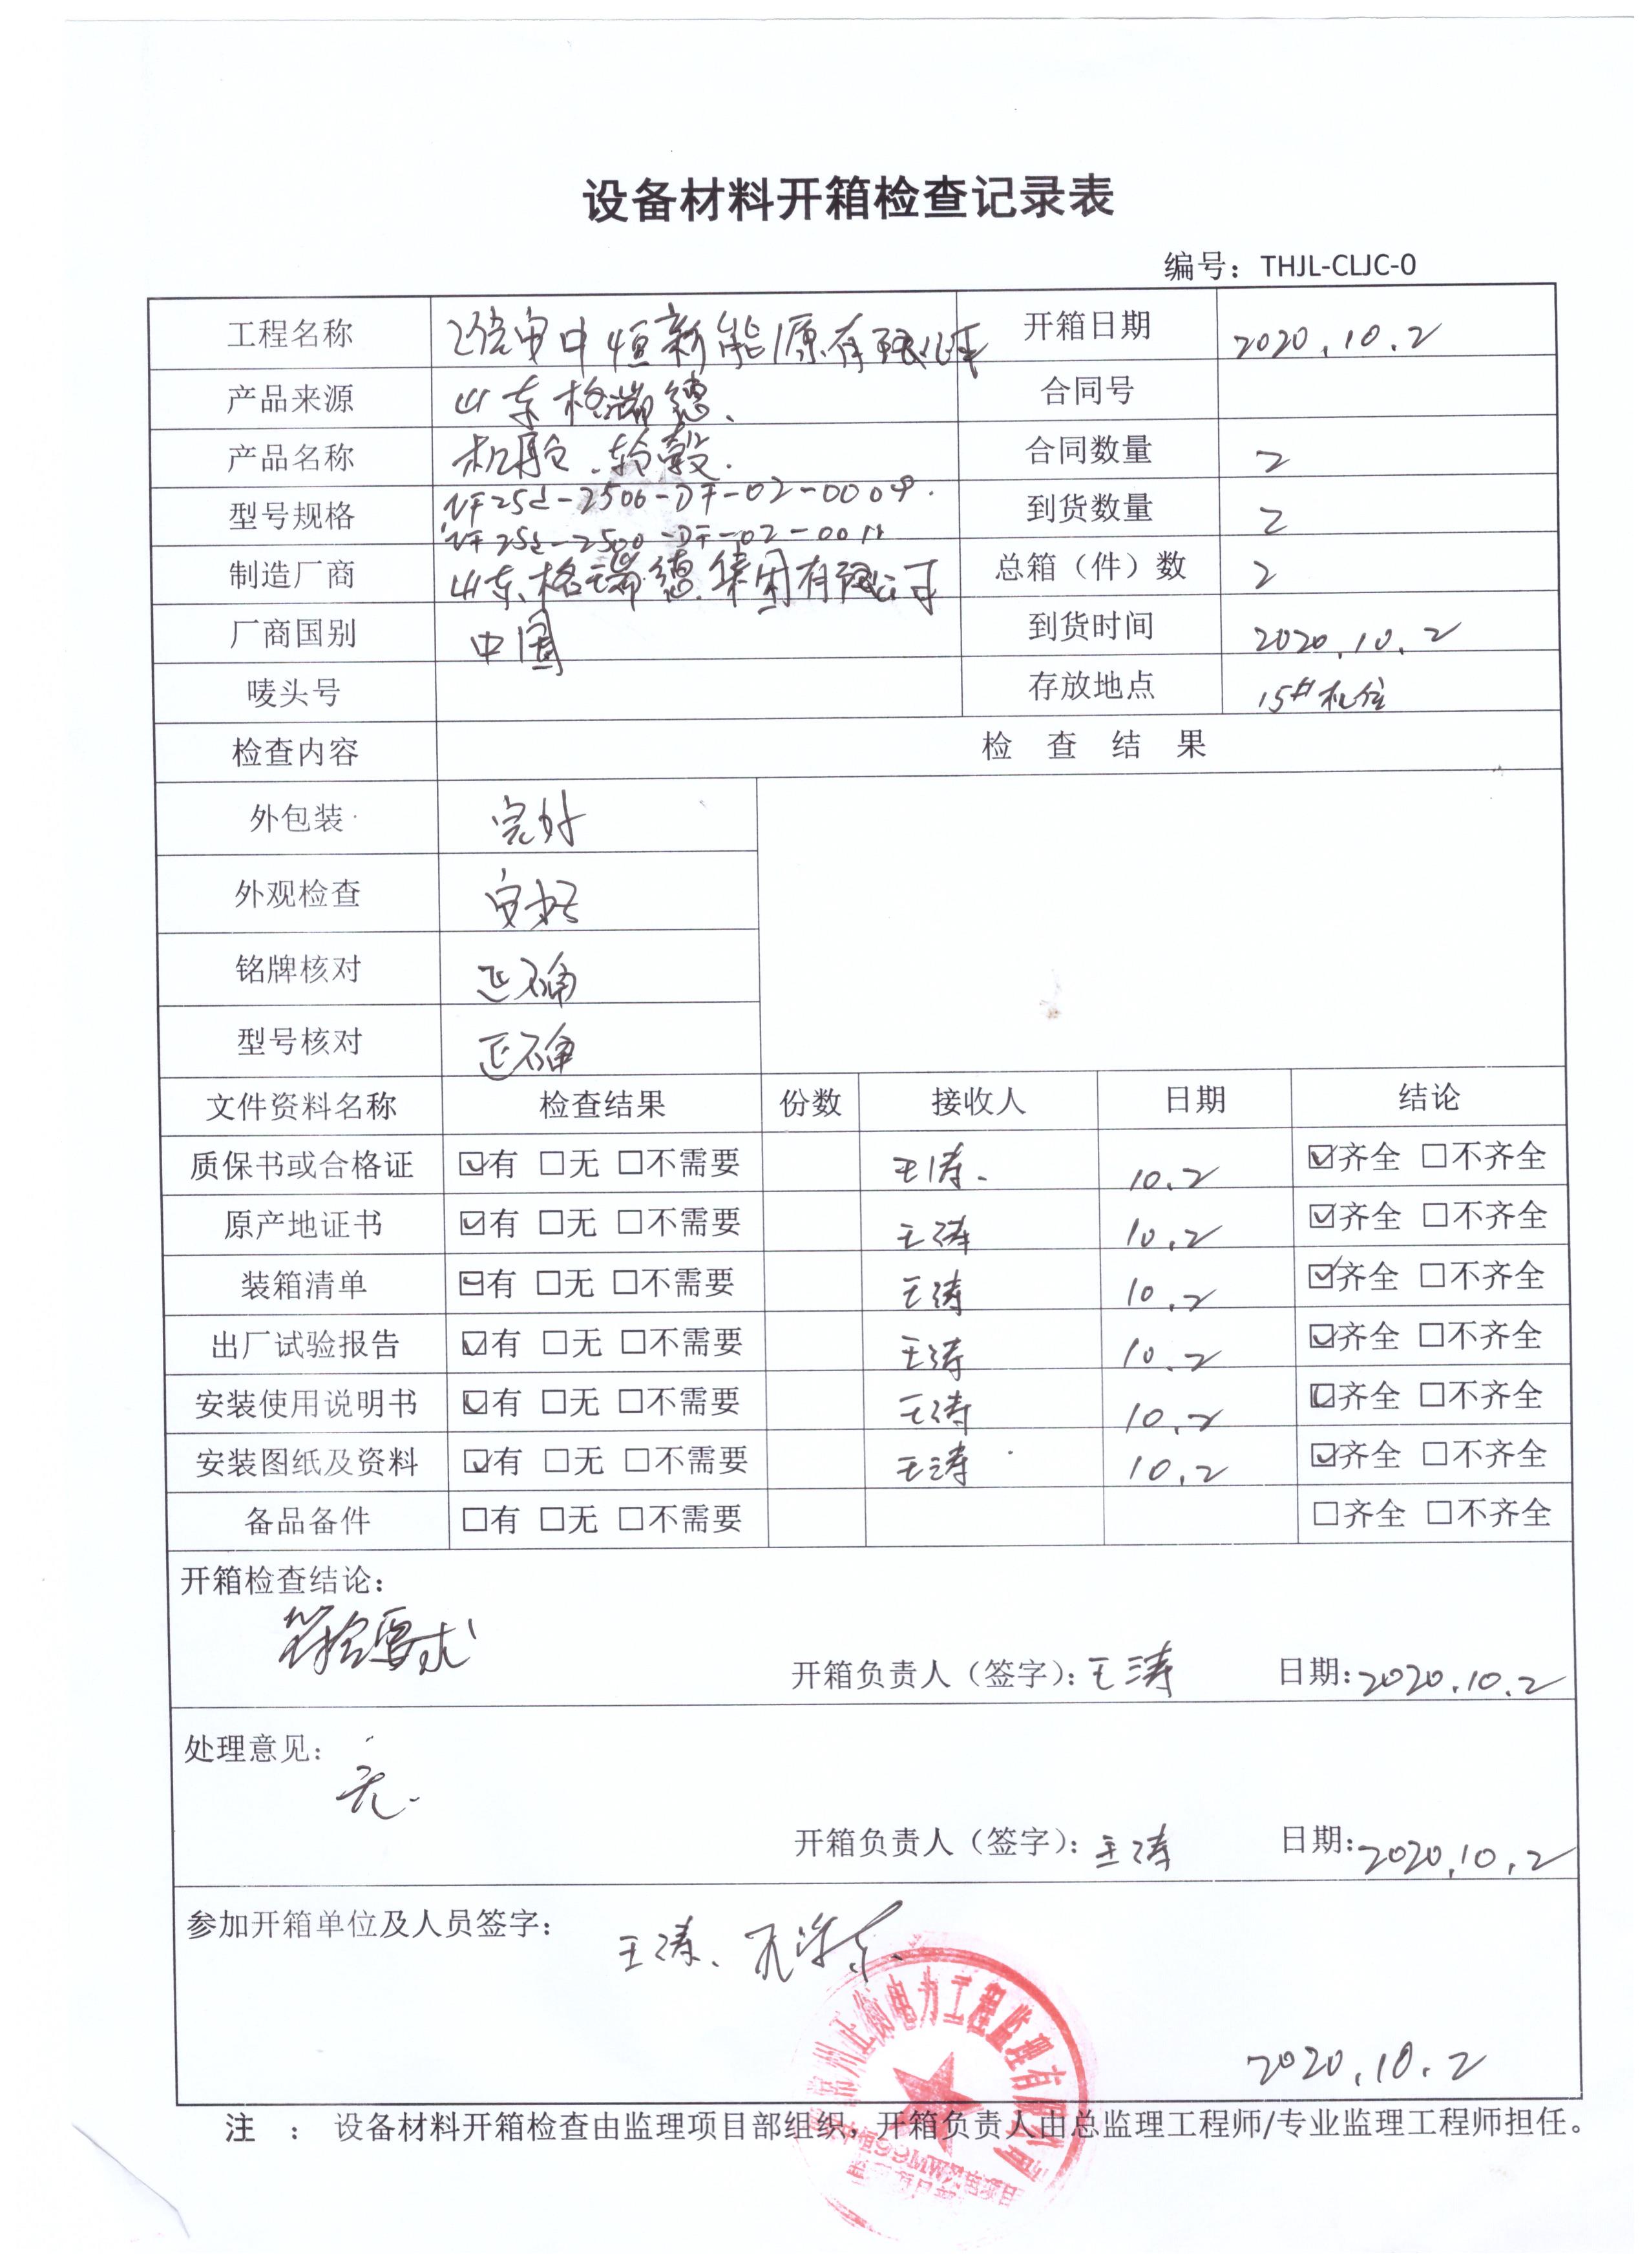 设备材料开箱检查记录表
编号：THJL-CLJC-0
工程名称 中恒新能源有限公司 开箱日期 2020.10.2
产品来源 山东格瑞德、 合同号
产品名称 机舱、轮毂. 合同数量 2
型号规格 -2500-DF-02-0009. 到货数量 2
-2500-DF-02-0011
制造厂商 山东格瑞德集团有限公司 总箱（件）数 2
厂商国别 中国 到货时间 2020.10.2
唛头号 存放地点 15#机位
检查内容 检 查 结 果
外包装 完好
外观检查 完好
铭牌核对 正确
型号核对 正确
文件资料名称 检查结果 份数 接收人 日期 结论
质保书或合格证 ☑有 □无 □不需要 王涛. 10.2 ☑齐全 □不齐全
原产地证书 ☑有 □无 □不需要 王涛 10.2 ☑齐全 □不齐全
装箱清单 ☑有 □无 □不需要 王涛 10.2 ☑齐全 □不齐全
出厂试验报告 ☑有 □无 □不需要 王涛 10.2 ☑齐全 □不齐全
安装使用说明书 ☑有 □无 □不需要 王涛 10.2 ☑齐全 □不齐全
安装图纸及资料 ☑有 □无 □不需要 王涛 10.2 ☑齐全 □不齐全
备品备件 □有 □无 □不需要 □齐全 □不齐全
开箱检查结论：
符合要求
开箱负责人（签字）：王涛 日期：2020.10.2
处理意见：
无.
开箱负责人（签字）：王涛 日期：2020.10.2
参加开箱单位及人员签字： 王涛、
常州正衡电力工程监理有限公司
中恒99MW风电项目
2020.10.2
注 ： 设备材料开箱检查由监理项目部组织，开箱负责人由总监理工程师/专业监理工程师担任。